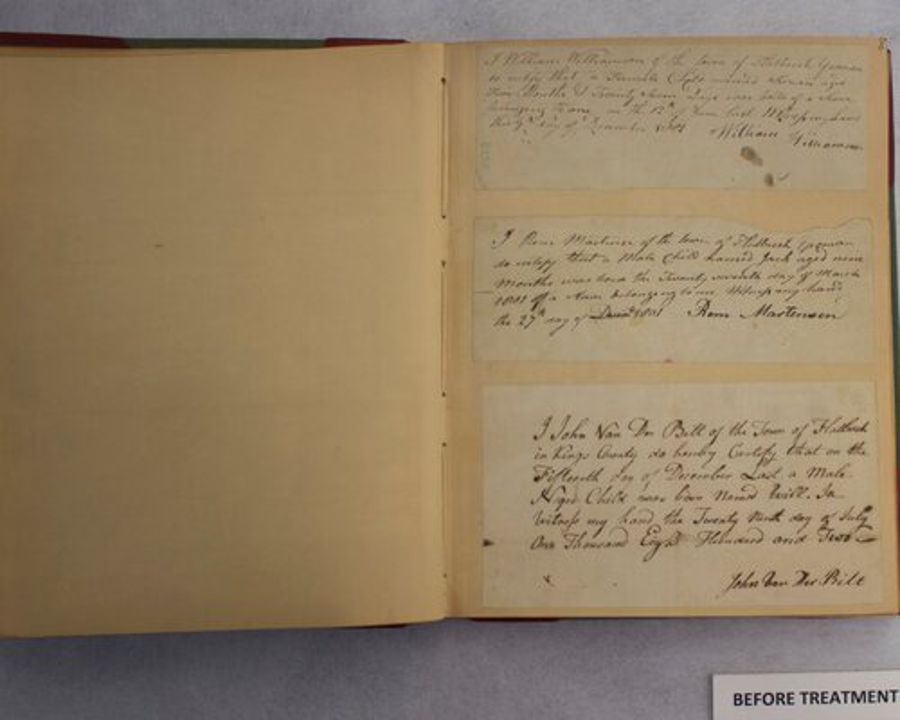 8
I William Williamson of the town of Flatbush Yeoman
do certify that a Female Child named aged
Months & Twenty Days was born of a slave
belonging to me on the 12th of June last Witness my hand
the day of December 1801 William Williamson
I Rem Martense of the town of Flatbush Yeoman
do certify that a Male Child named Jack aged nine
months was born the Twenty seventh day of March
1801 of a slave belonging to me Witness my hand
the 27th day of Decemr 1801 Rem Martensen
I John Van Der Bilt of the Town of Flatbush
in Kings County do hereby Certify that on the
Fifteenth day of December Last a Male
Negro Child was born Named Will. In
Witness my hand the Twenty Ninth day of July
One Thousand Eight Hundred and Two
John Van Der Bilt
BEFORE TREATMENT